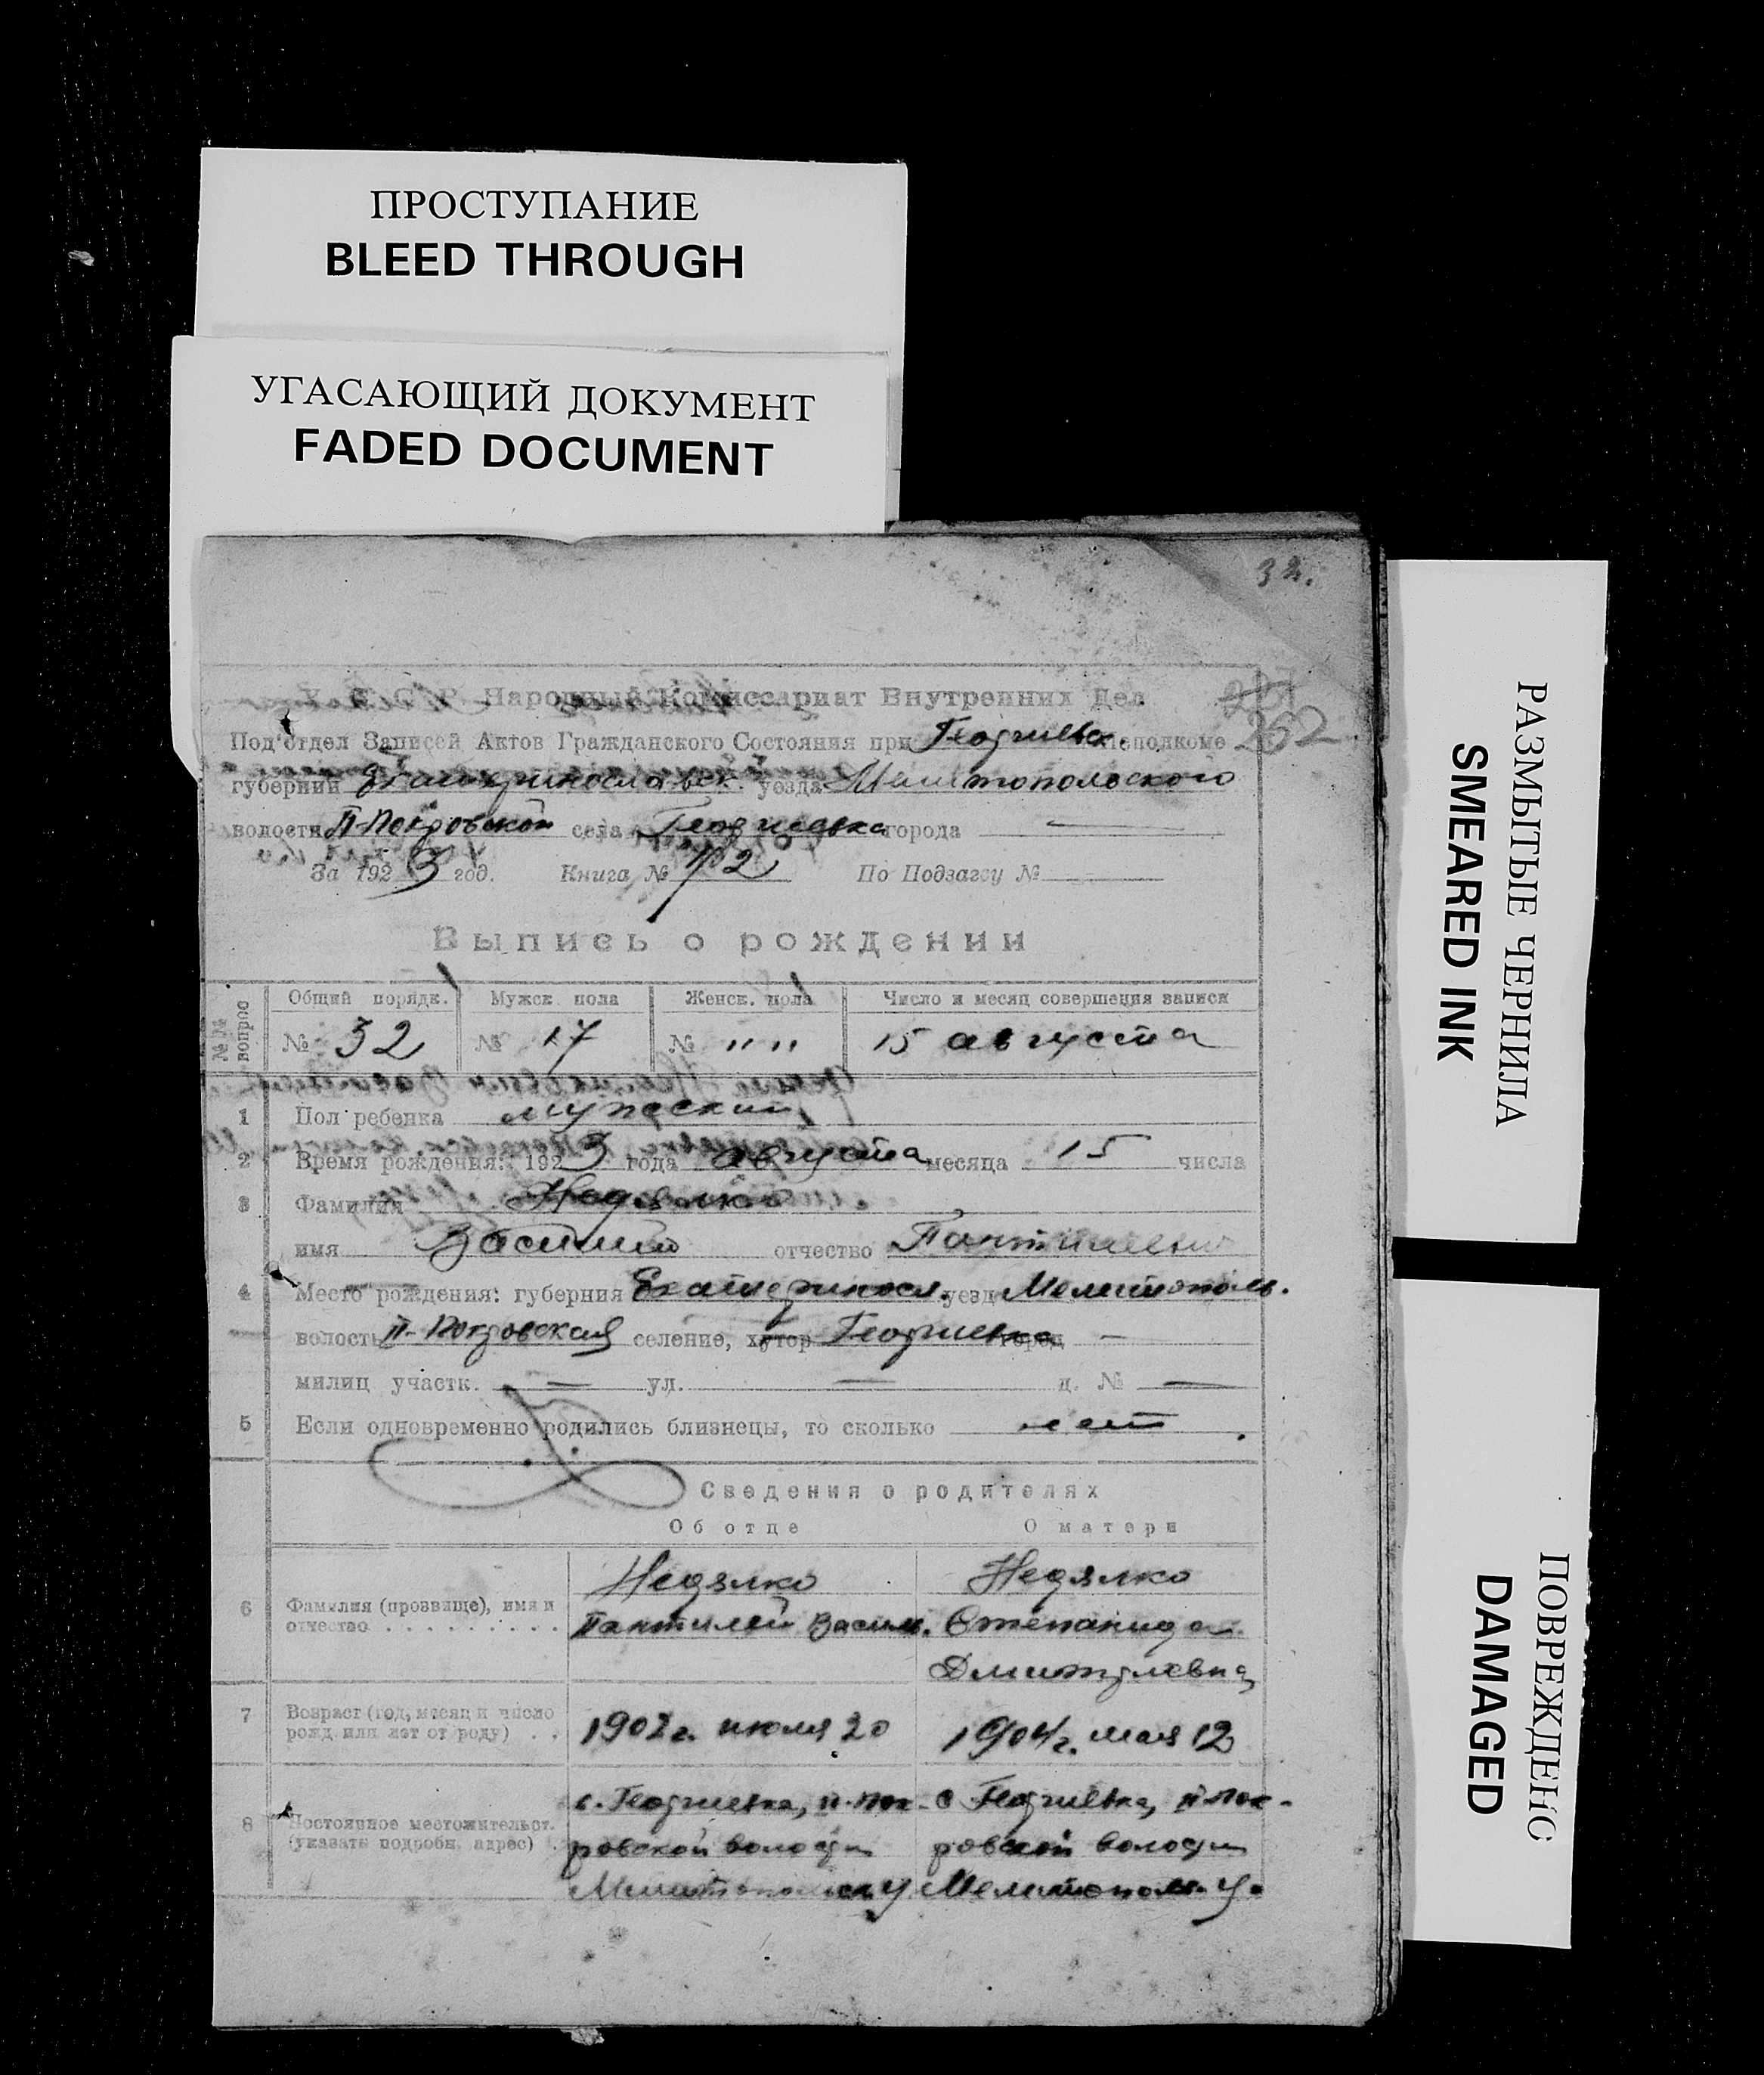 ПРОСТУПАНИЕ
BLEED THROUGH
УГАСАЮЩИЙ ДОКУМЕНТ
FADED DOCUMENT
РАЗМЫТЫЕ ЧЕРНИЛА
SMEARED INK
ПОВРЕЖДЕНС
DAMAGED
32.
У. С. С. Р. Народный Комиссариат Внутренних Дел
252
Под'отдел Записей Актов Гражданского Состояния при Георгиевск. Исполкоме
губернии Екатеринославск. уезда Мелитопольского
волости П-Покровской села Георгиевка города —
За 1923 год. Книга № 2 По Подзагсу №
Выпись о рождении
№№ вопрос Общий порядк. Мужск. пола Женск. пола Число и месяц совершения записи
№ 32 № 17 № " " 15 августа
1 Пол ребенка мужеский
2 Время рождения: 1923 года августа месяца 15 числа
3 Фамилия Недялко
имя Василий отчество
4 Место рождения: губерния Екатериносл. уезд Мелитополь.
волость П-Покровская селение, хутор Георгиевка город —
милиц участк. — ул. — д. № —
5 Если одновременно родились близнецы, то сколько нет
Сведения о родителях
Об отце О матери
6 Фамилия (прозвище), имя и отчество . . . . . . . . .
Недялко Недялко
Пантилей Василь. Степанида
Дмитриевна
7 Возраст (год, месяц и число рожд. или лет от роду) . .
1902 г. июля 20 1904 г. мая 12
8 Постоянное местожительст. (указать подробн. адрес) .
с. Георгиевка, п-пок- с Георгиевка, п-пок-
ровской волости ровской волости
Мелитопольск у Мелитополь. у.